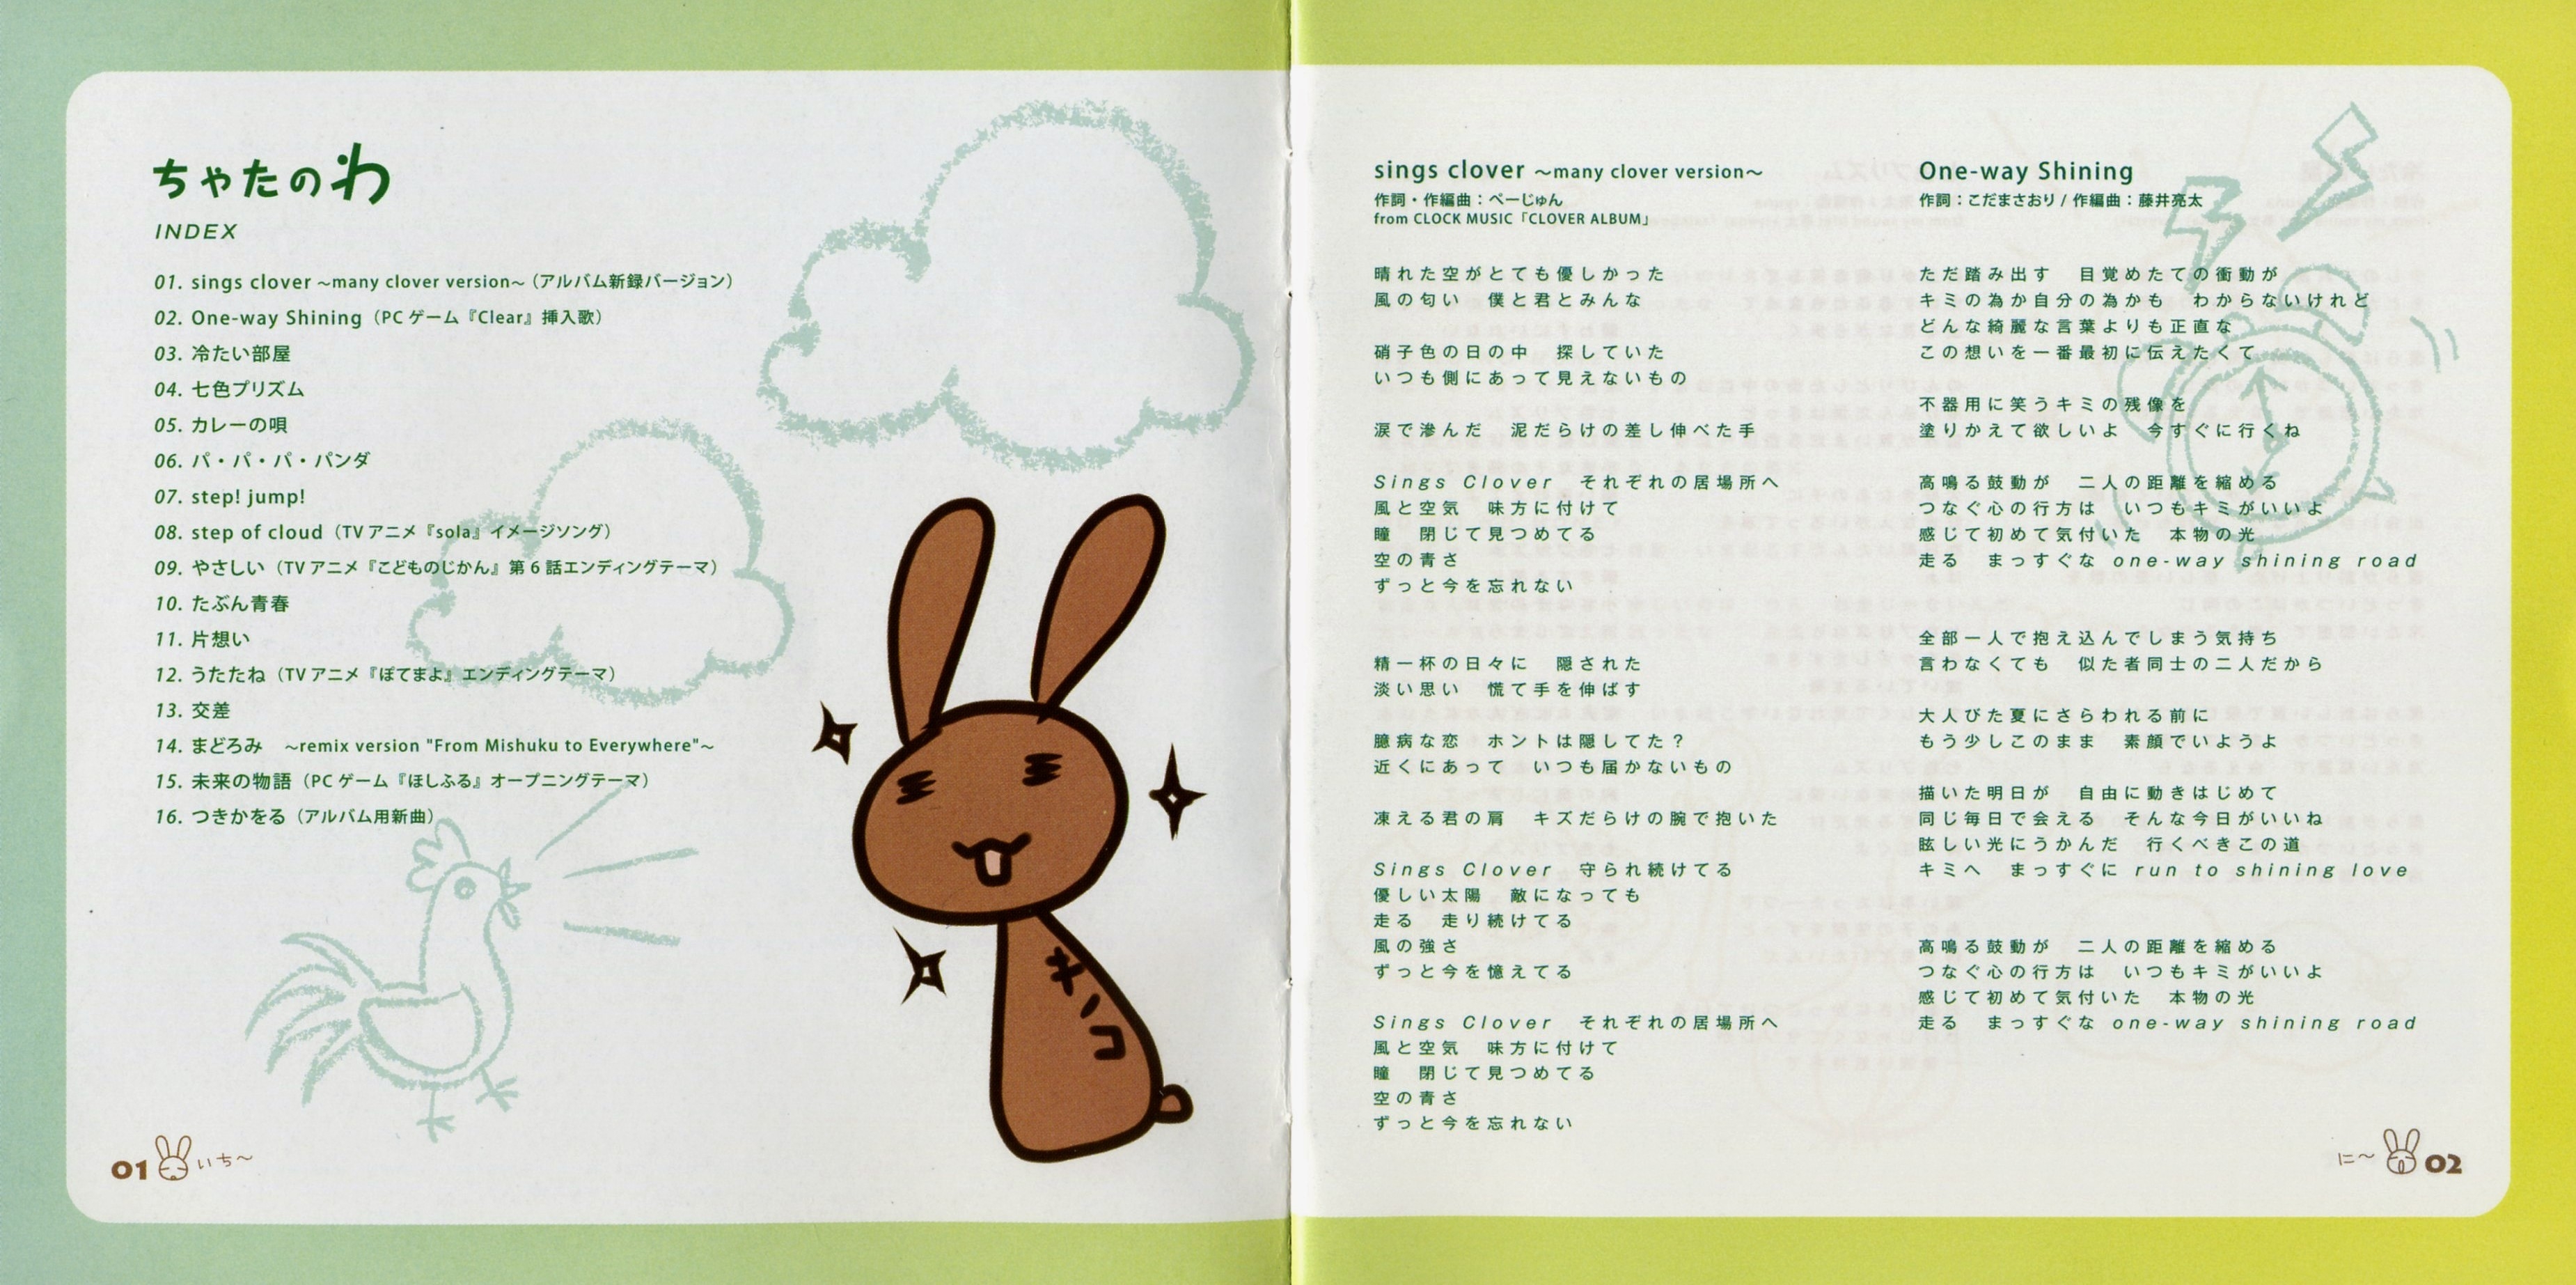 ちゃたのわ
INDEX
01. sings clover ～many clover version～（アルバム新録バージョン）
02. One-way Shining（PCゲーム『Clear』挿入歌）
03. 冷たい部屋
04. 七色プリズム
05. カレーの唄
06. パ・パ・パ・パンダ
07. step! jump!
08. step of cloud（TVアニメ『sola』イメージソング）
09. やさしい（TVアニメ『こどものじかん』第6話エンディングテーマ）
10. たぶん青春
11. 片想い
12. うたたね（TVアニメ『ぽてまよ』エンディングテーマ）
13. 交差
14. まどろみ　～remix version "From Mishuku to Everywhere"～
15. 未来の物語（PCゲーム『ほしふる』オープニングテーマ）
16. つきかをる（アルバム用新曲）
キンコ
01 いち～
sings clover ～many clover version～
作詞・作編曲：ぺーじゅん
from CLOCK MUSIC「CLOVER ALBUM」
晴れた空がとても優しかった
風の匂い　僕と君とみんな
硝子色の日の中　探していた
いつも側にあって見えないもの
涙で滲んだ　泥だらけの差し伸べた手
Sings Clover　それぞれの居場所へ
風と空気　味方に付けて
瞳　閉じて見つめてる
空の青さ
ずっと今を忘れない
精一杯の日々に　隠された
淡い思い　慌て手を伸ばす
臆病な恋　ホントは隠してた？
近くにあって　いつも届かないもの
凍える君の肩　キズだらけの腕で抱いた
Sings Clover　守られ続けてる
優しい太陽　敵になっても
走る　走り続けてる
風の強さ
ずっと今を憶えてる
Sings Clover　それぞれの居場所へ
風と空気　味方に付けて
瞳　閉じて見つめてる
空の青さ
ずっと今を忘れない
One-way Shining
作詞：こだまさおり / 作編曲：藤井亮太
ただ踏み出す　目覚めたての衝動が
キミの為か自分の為かも　わからないけれど
どんな綺麗な言葉よりも正直な
この想いを一番最初に伝えたくて
不器用に笑うキミの残像を
塗りかえて欲しいよ　今すぐに行くね
高鳴る鼓動が　二人の距離を縮める
つなぐ心の行方は　いつもキミがいいよ
感じて初めて気付いた　本物の光
走る　まっすぐな one-way shining road
全部一人で抱え込んでしまう気持ち
言わなくても　似た者同士の二人だから
大人びた夏にさらわれる前に
もう少しこのまま　素顔でいようよ
描いた明日が　自由に動きはじめて
同じ毎日で会える　そんな今日がいいね
眩しい光にうかんだ　行くべきこの道
キミへ　まっすぐに run to shining love
高鳴る鼓動が　二人の距離を縮める
つなぐ心の行方は　いつもキミがいいよ
感じて初めて気付いた　本物の光
走る　まっすぐな one-way shining road
に～ 02